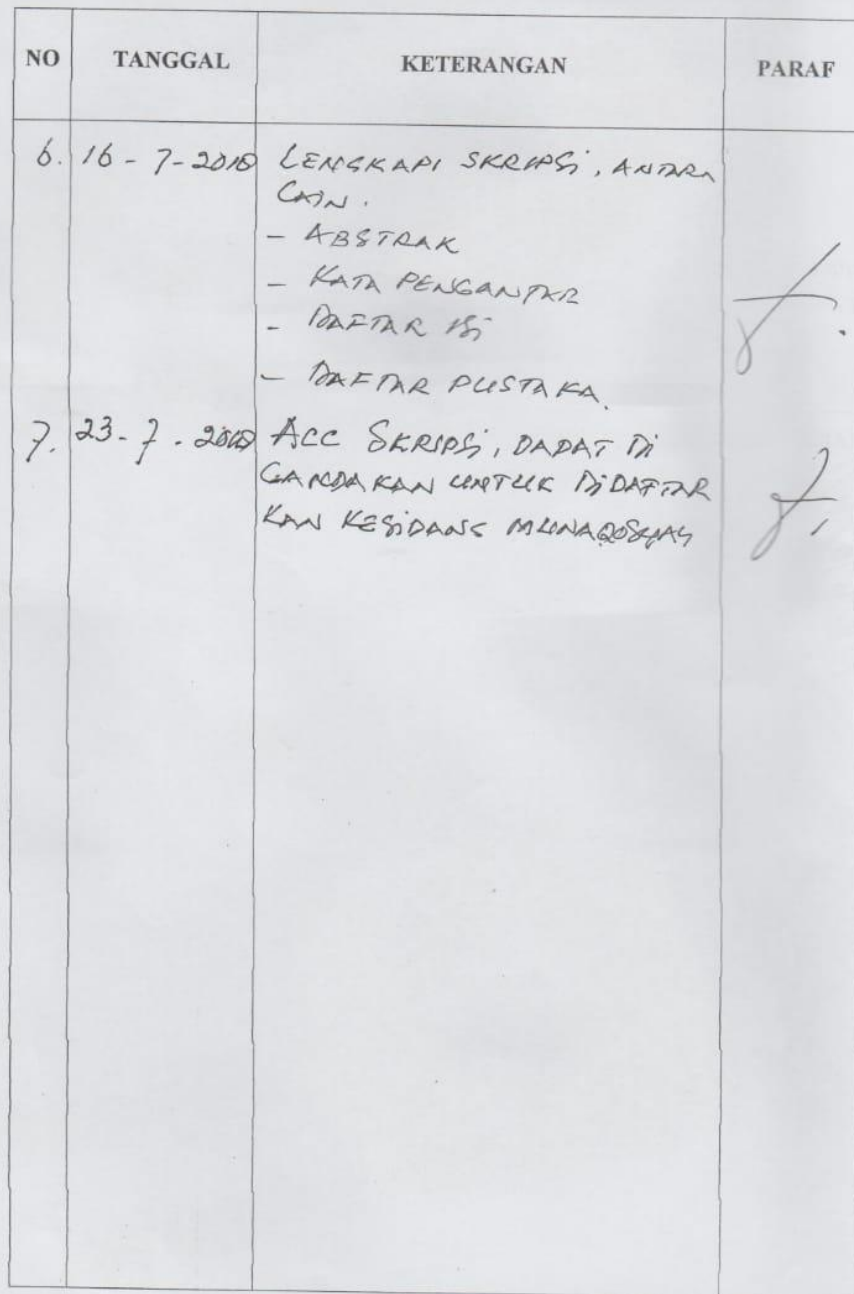 NO TANGGAL KETERANGAN PARAF
6. 16 - 7 - 2018 LENGKAPI SKRIPSI, ANTARA
LAIN.
- ABSTRAK
- KATA PENGANTAR
- DAFTAR ISI
- DAFTAR PUSTAKA.
7. 23 - 7 - 2018 ACC SKRIPSI, DAPAT DI
GANDAKAN UNTUK DIDAFTAR
KAN KESIDANG MUNAQOSHAH